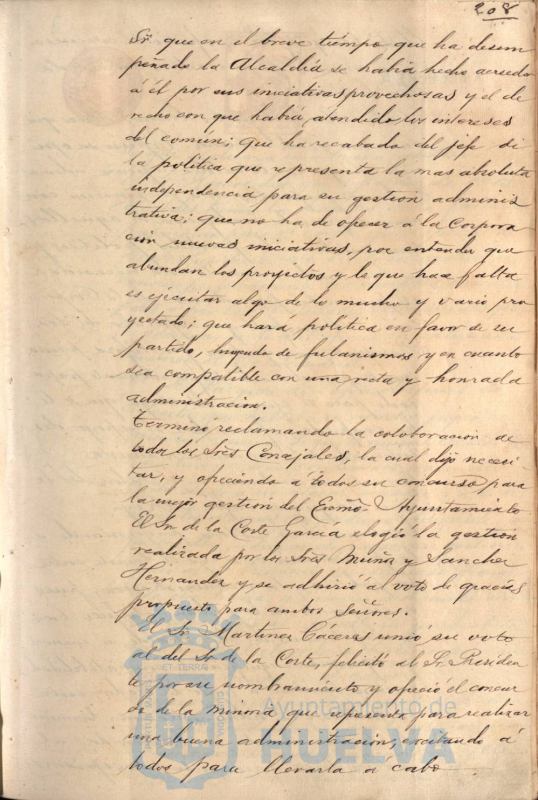 208
Sr. que en el breve tiempo que ha desem
peñado la Alcaldía se había hecho acreedor
á él por sus iniciativas provechosas y el de
recho con que había atendido los intereses
del común; que ha recabado del jefe de
la política que representa la mas absoluta
independencia para su gestion adminis
trativa; que no ha de ofrecer á la Corpora
ción nuevas iniciativas, por entender que
abundan los proyectos y lo que hace falta
es ejecutar algo de lo mucho y vario pro
yectado; que hará política en favor de su
partido, huyendo de fulanismos y en cuanto
sea compatible con una recta y honrada
administracion.
Terminó reclamando la colaboracion de
todos los Sres Concejales, la cual dijo necesi
tar, y ofreciendo á todos su concurso para
la mejor gestión del Excmo. Ayuntamiento
El Sr. de la Corte García elogió la gestion
realizada por los Sres Muñiz y Sanchez
Hernandez y se adhirió al voto de gracias
propuesto para ambos Señores.
El Sr. Martinez Cáceres unió su voto
al del Sr. de la Corte, felicitó al Sr. Presiden
te por ese nombramiento y ofreció el concur
so de la minoria que representa para realizar
una buena administracion, excitando á
todos para llevarla a cabo
Ayuntamiento de
HUELVA